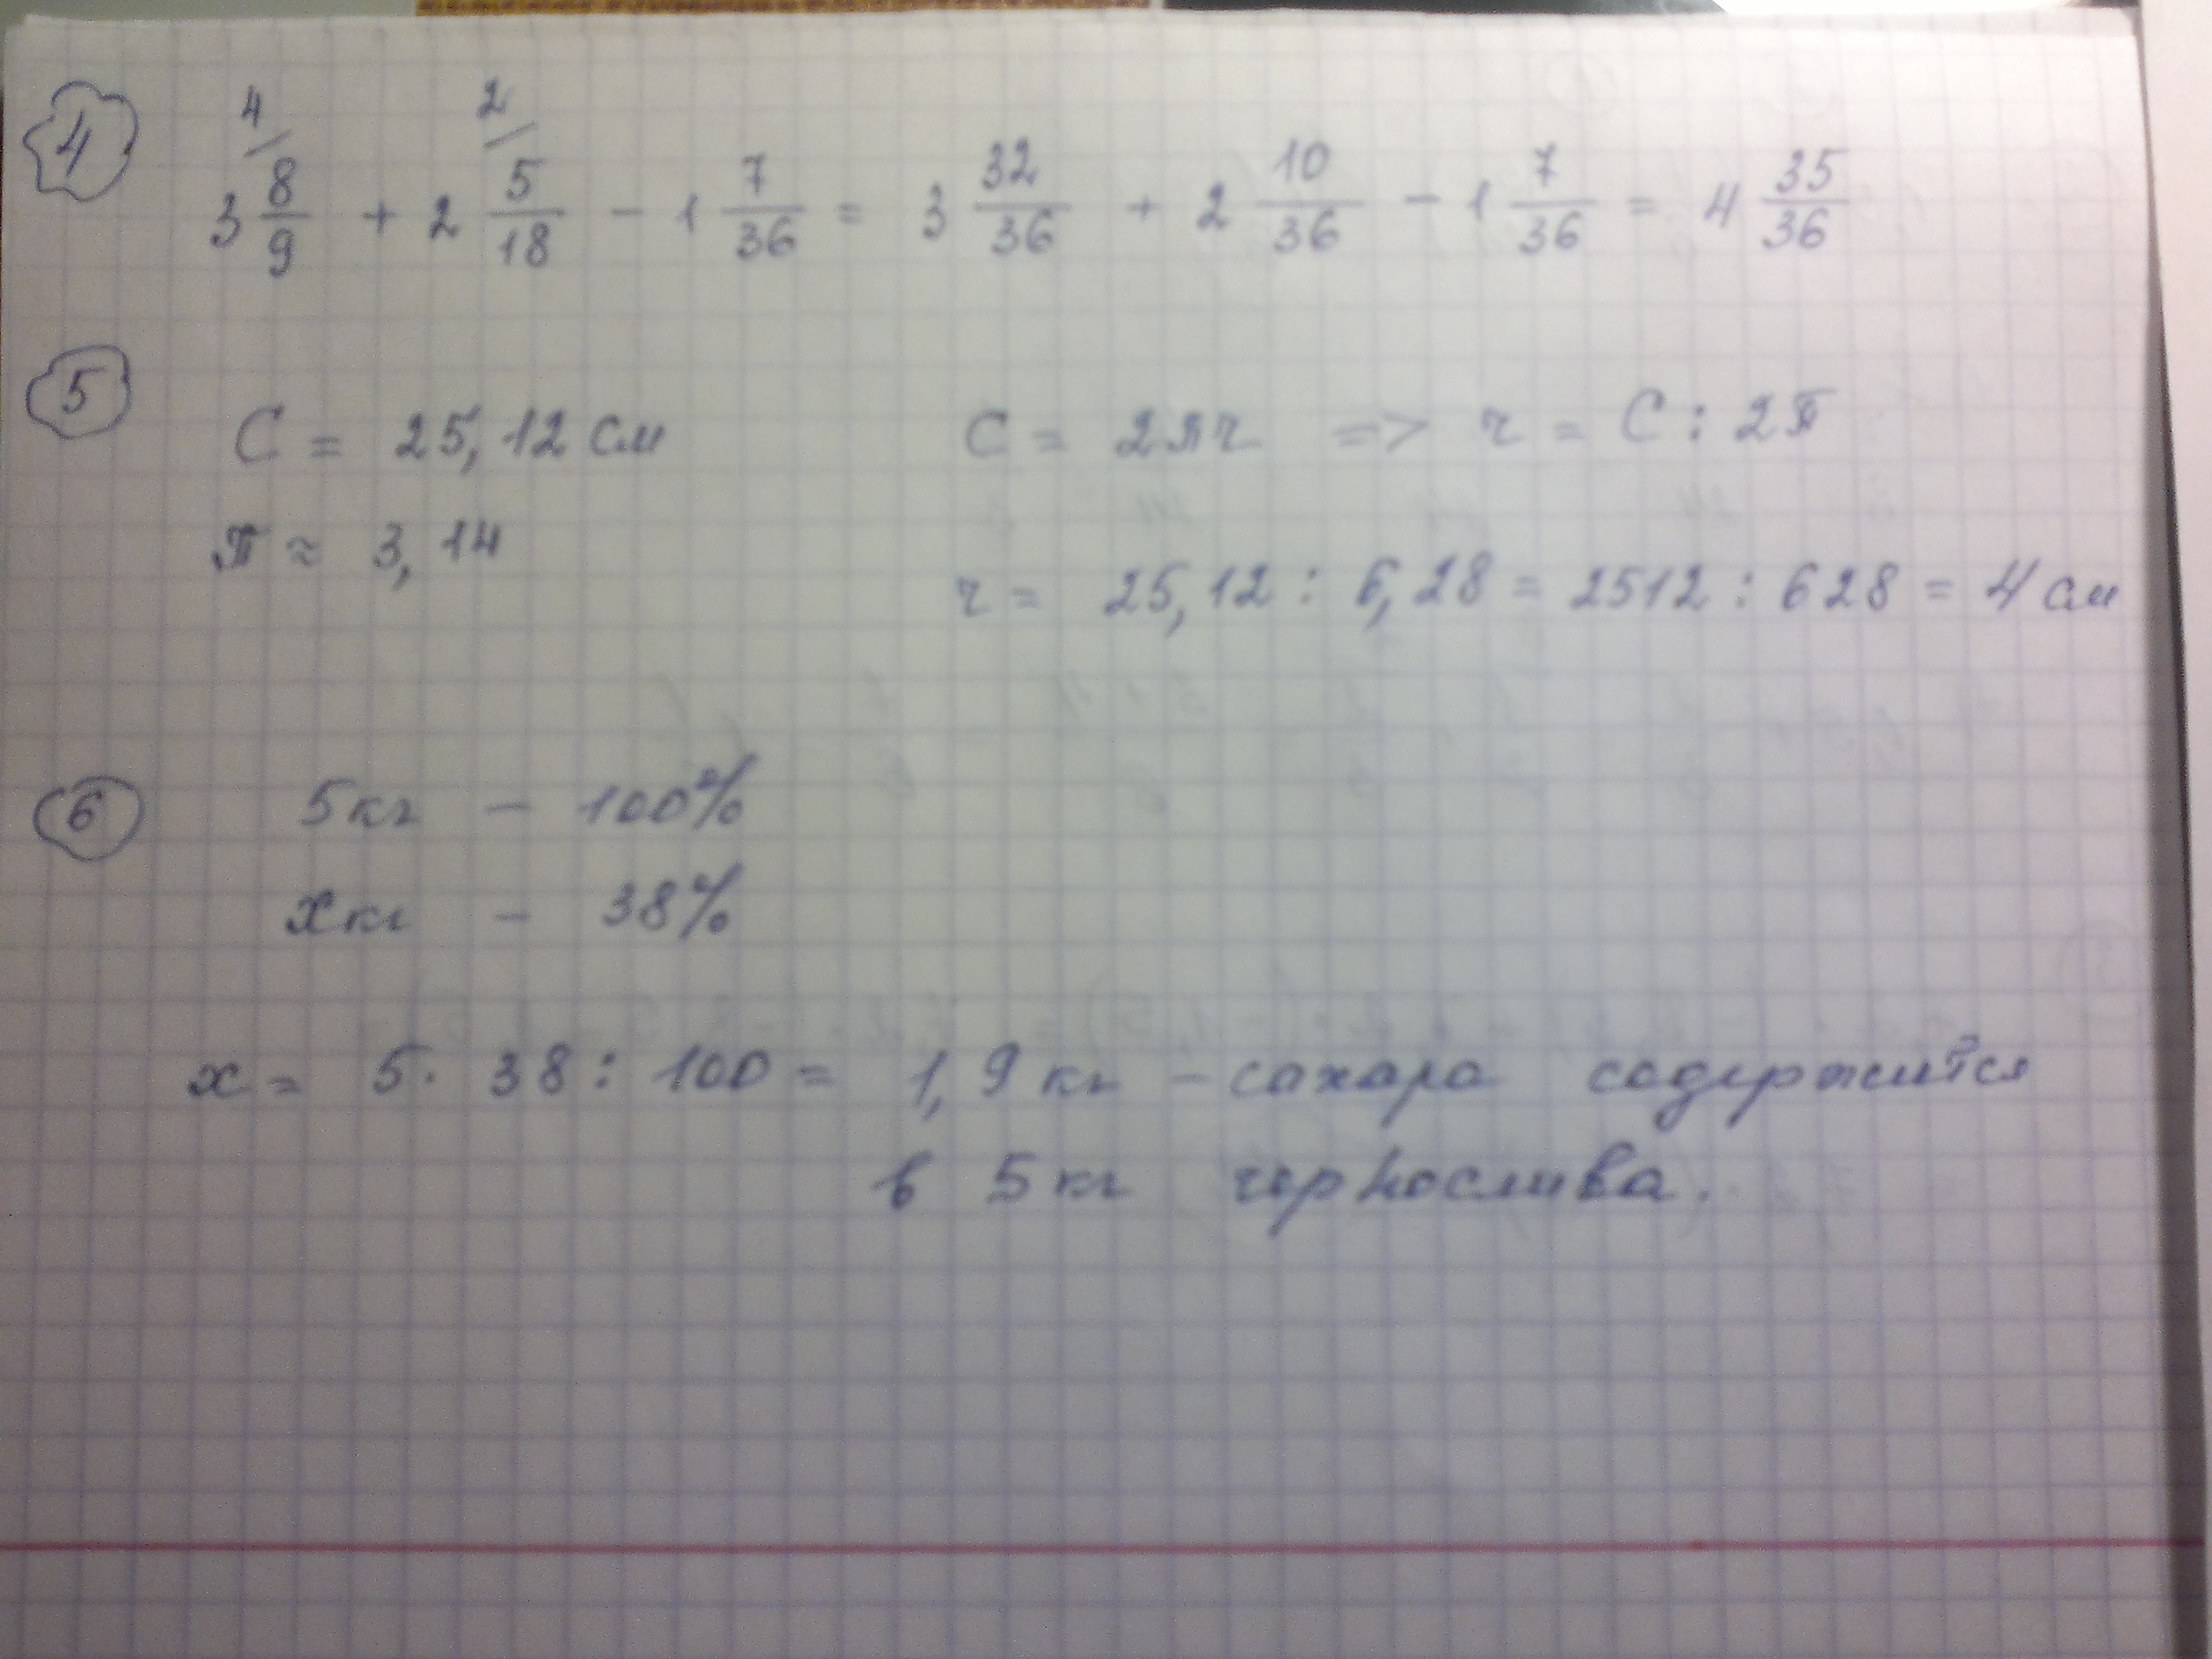 4 3 8/9 + 2 5/18 - 1 7/36 = 3 32/36 + 2 10/36 - 1 7/36 = 4 35/36
4/ 2/
5 C = 25,12 см C = 2πr => r = C : 2π
π ≈ 3,14
r = 25,12 : 6,28 = 2512 : 628 = 4 см
6 5 кг - 100%
x кг - 38%
x = 5 · 38 : 100 = 1,9 кг - сахара содержится
в 5 кг чернослива.